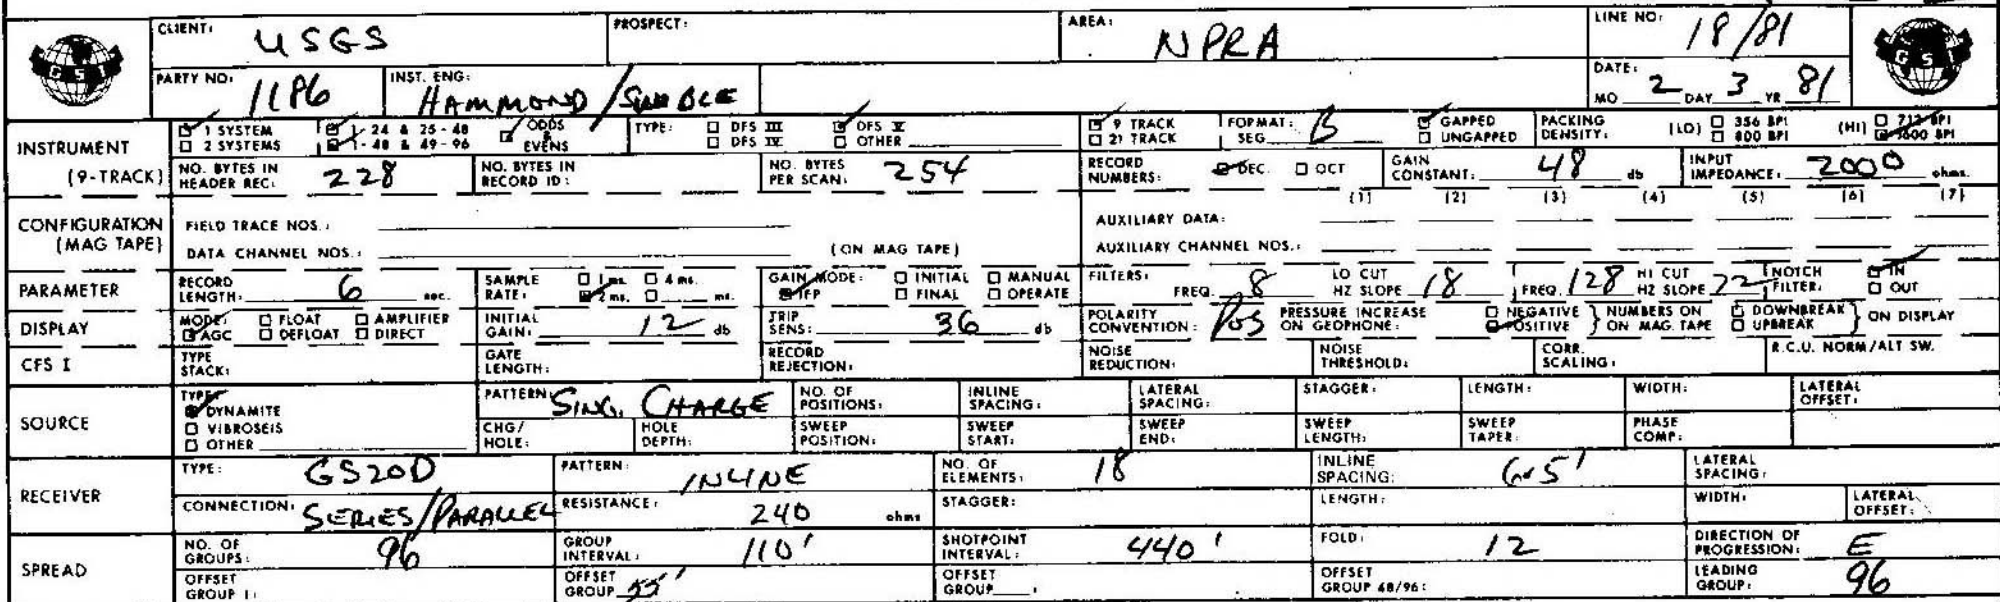 CLIENT: USGS PROSPECT: AREA: NPRA LINE NO: 18/81
GSI GSI
PARTY NO: 11P6 INST. ENG: HAMMOND / DATE: MO 2 DAY 3 YR 81
INSTRUMENT (9-TRACK) 1 SYSTEM 1-24 & 25-48 ODDS & EVENS TYPE: DFS III DFS V 9 TRACK FORMAT: SEG B GAPPED PACKING DENSITY: (LO) 356 BPI (HI) 712 BPI
2 SYSTEMS 1-48 & 49-96 DFS IV OTHER 21 TRACK UNGAPPED 800 BPI 1600 BPI
NO. BYTES IN HEADER REC: 228 NO. BYTES IN RECORD ID: NO. BYTES PER SCAN: 254 RECORD NUMBERS: DEC. OCT GAIN CONSTANT: 48 db INPUT IMPEDANCE: 2000 ohms.
CONFIGURATION (MAG TAPE) FIELD TRACE NOS.: AUXILIARY DATA: (1) (2) (3) (4) (5) (6) (7)
DATA CHANNEL NOS.: (ON MAG TAPE) AUXILIARY CHANNEL NOS.:
PARAMETER RECORD LENGTH: 6 sec. SAMPLE RATE: 1 ms. 4 ms. 2 ms. ms. GAIN MODE: INITIAL MANUAL IFP FINAL OPERATE FILTERS: FREQ. 8 LO CUT HZ SLOPE 18 FREQ. 128 HI CUT HZ SLOPE 72 NOTCH FILTER: IN OUT
DISPLAY MODE: FLOAT AMPLIFIER AGC DEFLOAT DIRECT INITIAL GAIN: 12 db TRIP SENS: 36 db POLARITY CONVENTION: Pos PRESSURE INCREASE ON GEOPHONE: NEGATIVE POSITIVE } NUMBERS ON ON MAG. TAPE DOWNBREAK UPBREAK } ON DISPLAY
CFS I TYPE STACK: GATE LENGTH: RECORD REJECTION: NOISE REDUCTION: NOISE THRESHOLD: CORR. SCALING: R.C.U. NORM/ALT SW.
SOURCE TYPE DYNAMITE VIBROSEIS OTHER PATTERN: SING. CHARGE NO. OF POSITIONS: INLINE SPACING: LATERAL SPACING: STAGGER: LENGTH: WIDTH: LATERAL OFFSET:
CHG/HOLE: HOLE DEPTH: SWEEP POSITION: SWEEP START: SWEEP END: SWEEP LENGTH: SWEEP TAPER: PHASE COMP:
RECEIVER TYPE: GS20D PATTERN: INLINE NO. OF ELEMENTS: 18 INLINE SPACING: LATERAL SPACING:
CONNECTION: SERIES/PARALLEL RESISTANCE: 240 ohms STAGGER: LENGTH: WIDTH: LATERAL OFFSET:
SPREAD NO. OF GROUPS: 96 GROUP INTERVAL: 110' SHOTPOINT INTERVAL: 440' FOLD: 12 DIRECTION OF PROGRESSION: E
OFFSET GROUP 1: OFFSET GROUP 55' OFFSET GROUP : OFFSET GROUP 48/96: LEADING GROUP: 96